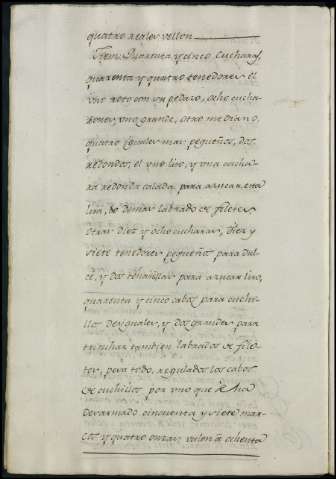 quatro reales vellon
Item Quarenta y cinco cucharas,
quarenta y quatro tenedores el
uno roto con un pedazo, ocho cucha
rones, uno grande, otro mediano,
quatro iguales mas pequeños, dos
redondos, el uno liso, y una cucha
ra redonda calada para azucar, esta
lisa, lo demas labrado de filetes
otras diez y ocho cucharas, diez y
siete tenedores pequeños para dul
ce, y dos para azucar liso,
quarenta y cinco cabos para cuchi
llos desyguales, y dos grandes para
trinchar tambien labrados de file
tes, pesa todo, regulados los cabos
de cuchillos por uno que se ha
desarmado cinquenta y siete mar
cos y quatro onzas valen a ochenta